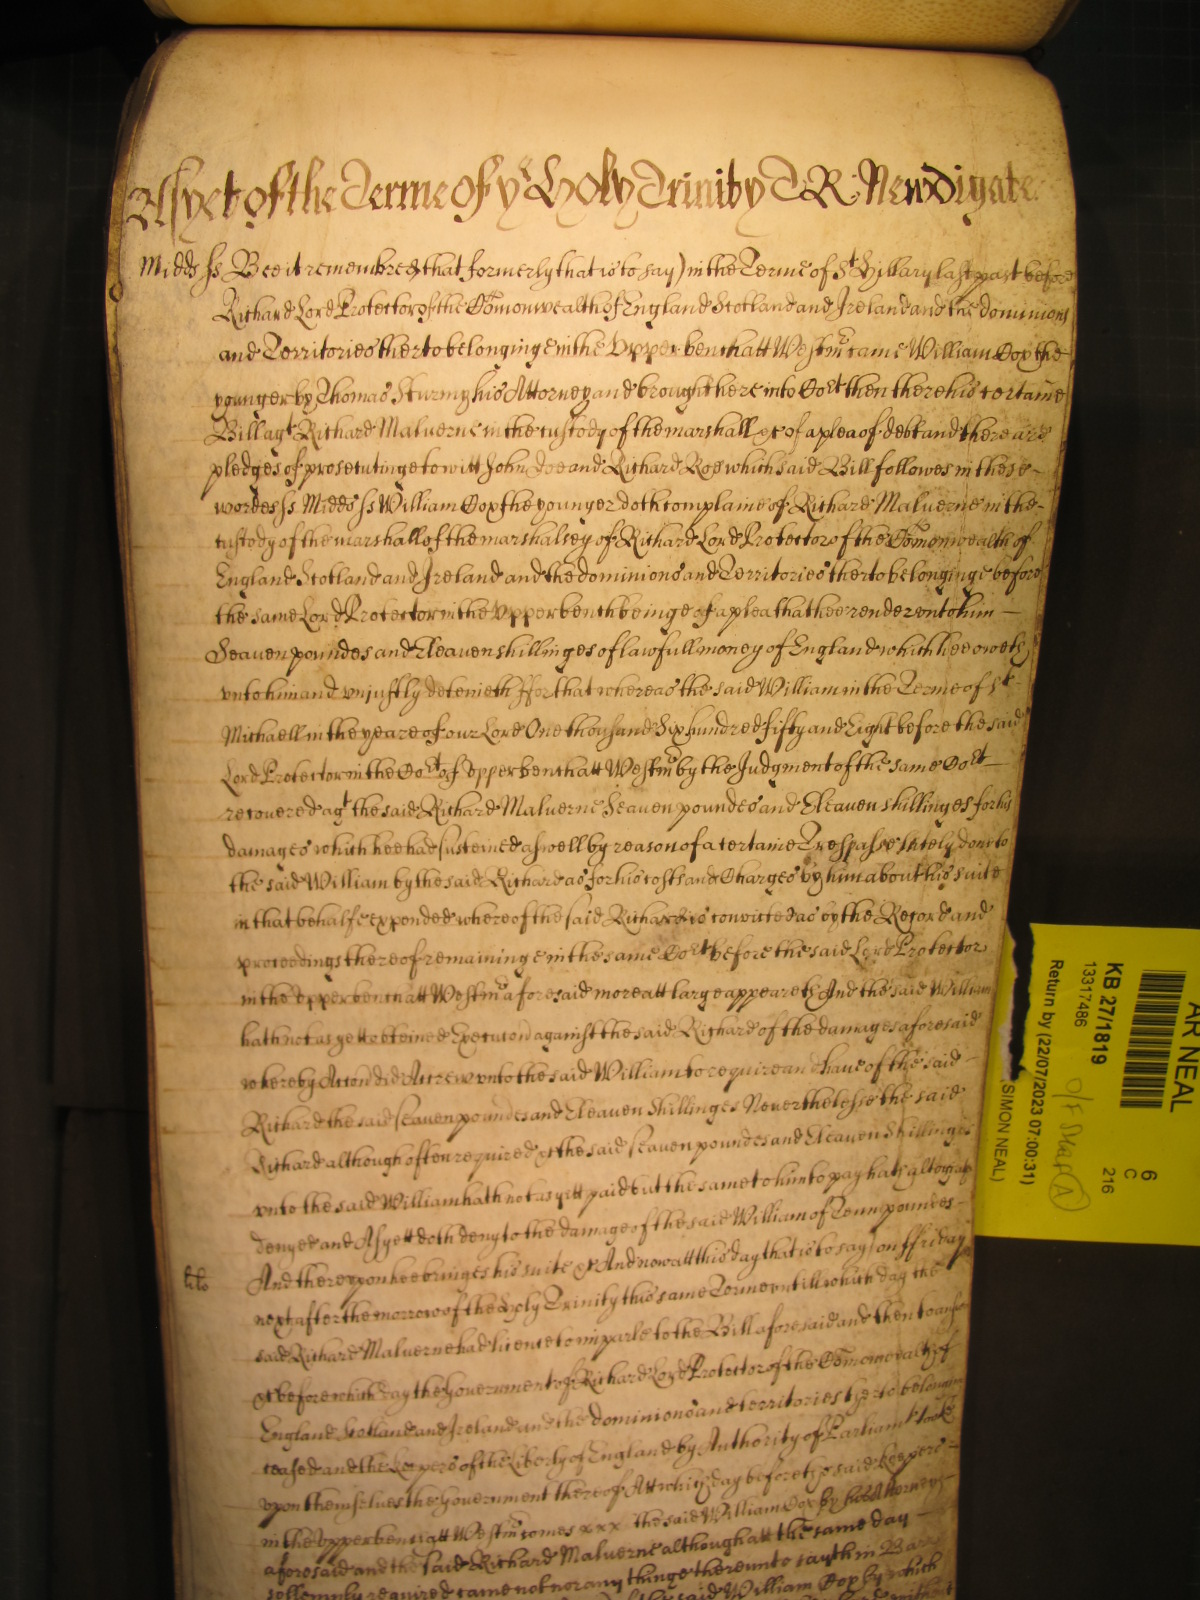 As yet of the Terme of ye Holy Trinity T R: Newdigate
Midds ss Bee it remembred that formerly that is to say) in the Terme of St Hillary last past before
Richard Lord Protector of the Comonwealth of England Scotland and Ireland and the dominions
and Territories therto belonginge in the Upper bench att Westmr came William Cox the
younger by Thomas Sturmy his Attorney and brought here into Cort then there his certaine
Bill agt Richard Malverne in the custody of the marshall &c of a plea of debt and there are
pledges of prosecutinge to witt John Doe and Richard Roe which said Bill followes in these
wordes ss Midds ss William Cox the younger doth complaine of Richard Malverne in the
custody of the marshall of the marshalsey of Richard Lord Protector of the Comonwealth of
England Scotland and Ireland and the dominions and Territories therto belonginge before
the same Lord Protector in the Upper bench beinge of a plea that hee render unto him
Seaven poundes and Eleaven shillinges of lawfull money of England which hee oweth
unto him and unjustly deteineth Ffor that whereas the said William in the Terme of St
Michaell in the yeare of our Lord One thousand Six hundred fifty and Eight before the said
Lord Protector in the Cort of upper bench att Westmr by the Judgment of the same Cort
recovered agt the said Richard Malverne Seaven poundes and Eleaven shillinges for his
damages which hee had susteined aswell by reason of a certaine Trespasse lately done to
the said William by the said Richard as for his costs and Charges by him about his suite
in that behalfe expended whereof the said Richard is convicted as by the Record and
proceedings thereof remaininge in the same Cort before the said Lord Protector
in the upper bench att Westmr aforesaid more att large appeareth And the said William
hath not as yett obteined Execucon against the said Richard of the damages aforesaid
whereby Accon did Accrew unto the said William to require and have of the said
Richard the said seaven poundes and Eleaven Shillinges Neverthelesse the said
Richard although often required &c the said seaven poundes and Eleaven Shillinges
unto the said William hath not as yett paid but the same to him to pay hath altogeather
denyed and As yett doth deny to the damage of the said William of Tenn poundes
And thereupon hee bringes his suite &c And now att this day that is to say) on ffriday
next after the morrow of the Holy Trinity this same Terme untill which day the
said Richard Malverne had licence to imparle to the Bill aforesaid and then to answ
&c before which day the Government of Richard Lord Protector of the Comonwealth of
England Scotland and Ireland and the dominions and territories therto belonging
ceased and the keepers of the Liberty of England by Authority of Parliamt tooke
upon themselves the Government thereof Att which day before the said keepers
in the Upper bench att Westmr comes xxx the said William Cox by his Attorney
aforesaid and the said Richard Malverne although att the same day
sollemnly required came not nor any thinge thereunto sayth in Barr
the said William Cox by which
AR NEAL
KB 27/1819
13317486
Return by (22/07/2023 07:00:31)
(SIMON NEAL)
6
C
216